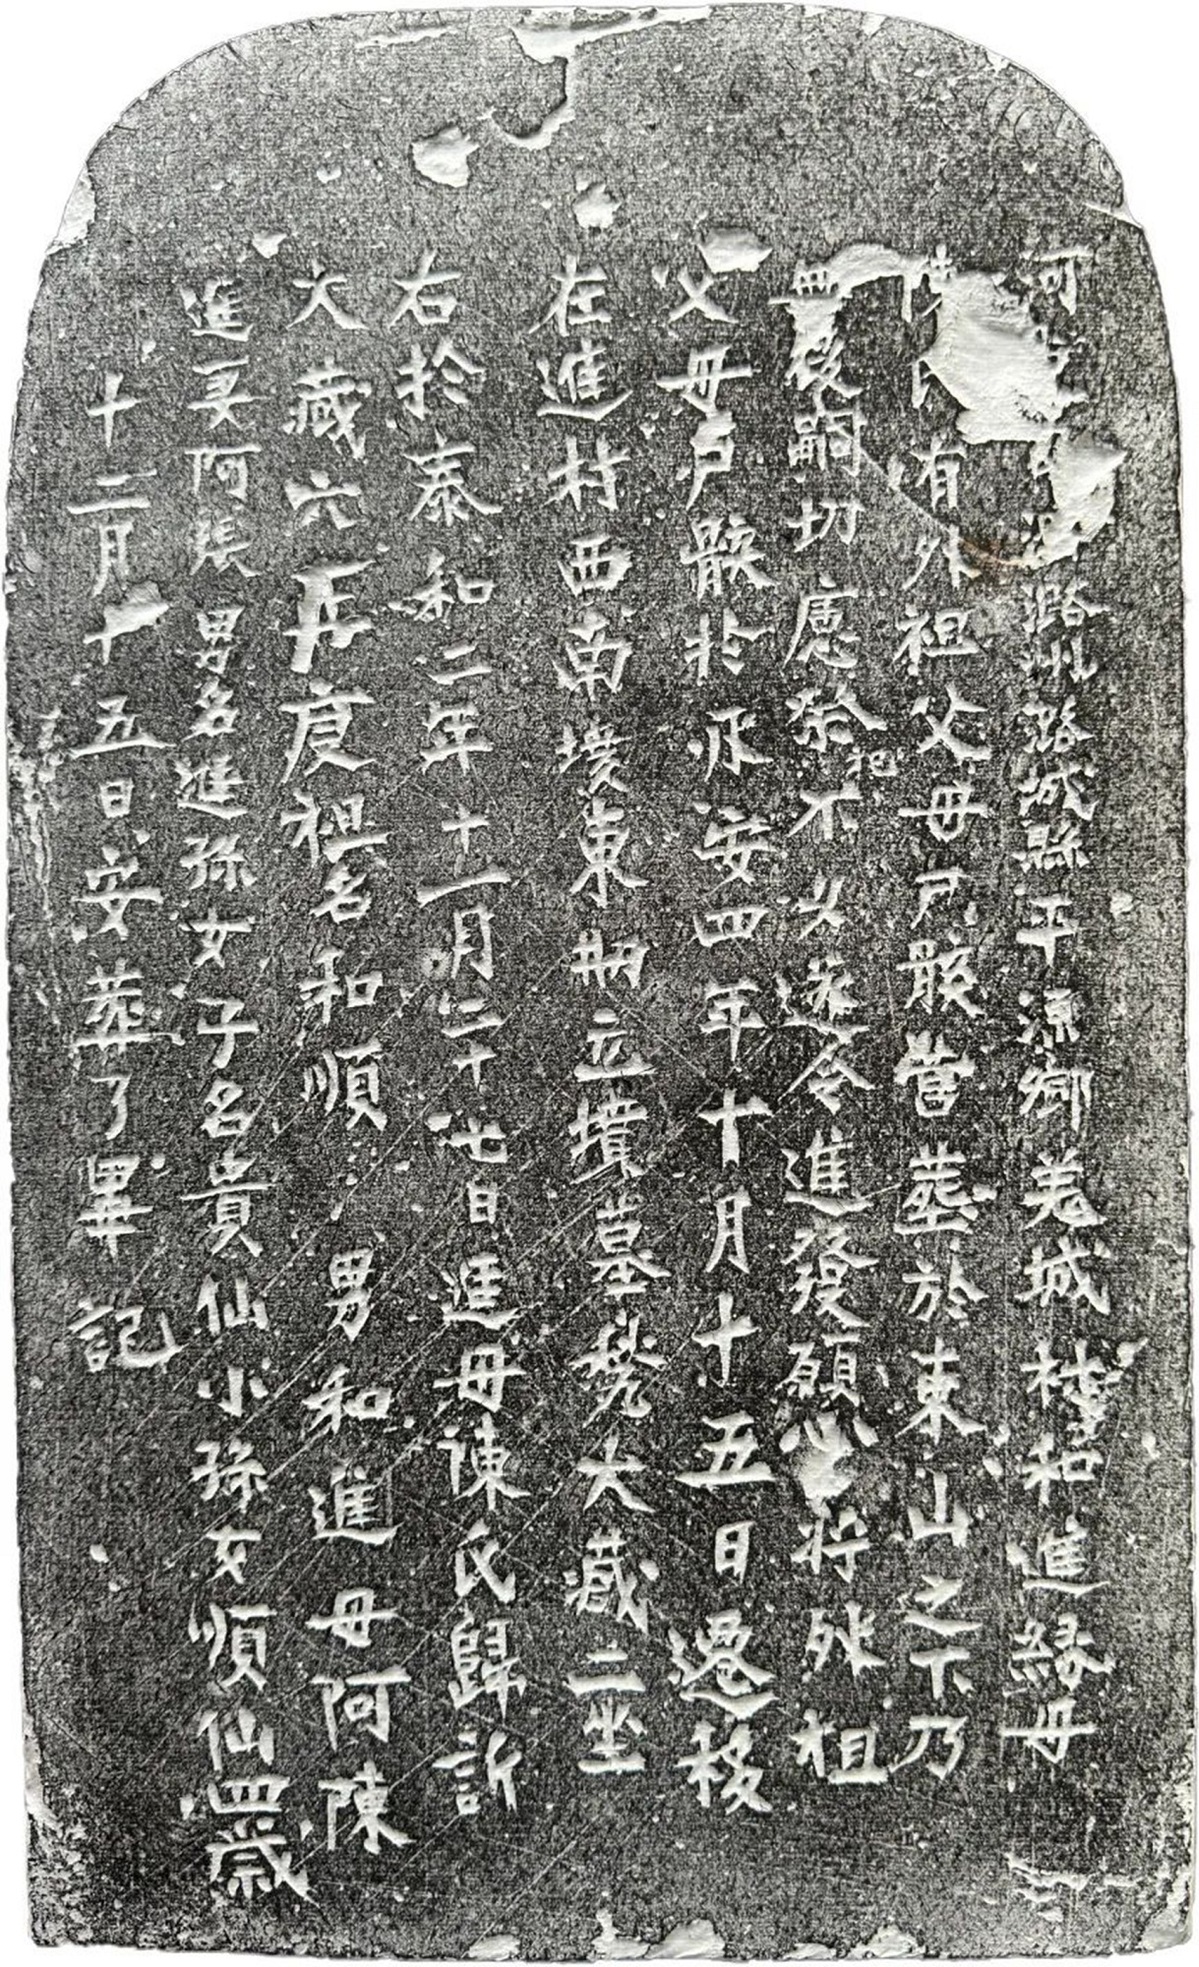 河 潞州潞城縣平源鄉羌城村和進緣母
陳氏有外祖父母尸骸昔葬於東山之下乃
無後嗣切慮祭祀不以遂令進發願心將外祖
父母尸骸於承安四年十月十五日遷移
在進村西南墳東剏立墳墓甃大藏二坐
右於泰和二年十一月二十七日進母陳氏歸訴
大藏穴居良祖名和順男和進母阿陳
進妻阿張男名進孫女子名貴仙小孫女順仙四歲
十二月十五日安葬了畢記